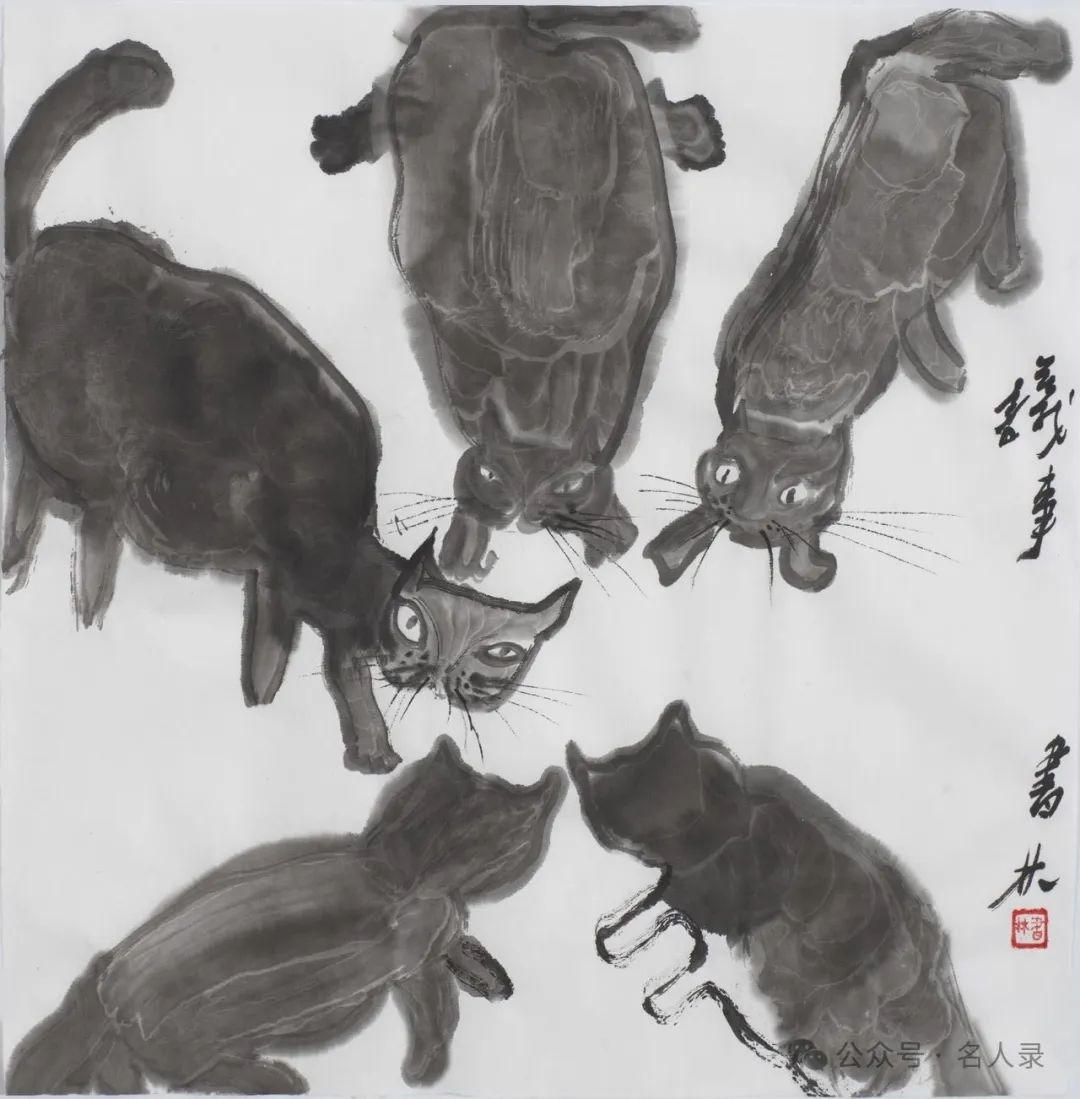 議事
書林
書林
公众号 · 名人录